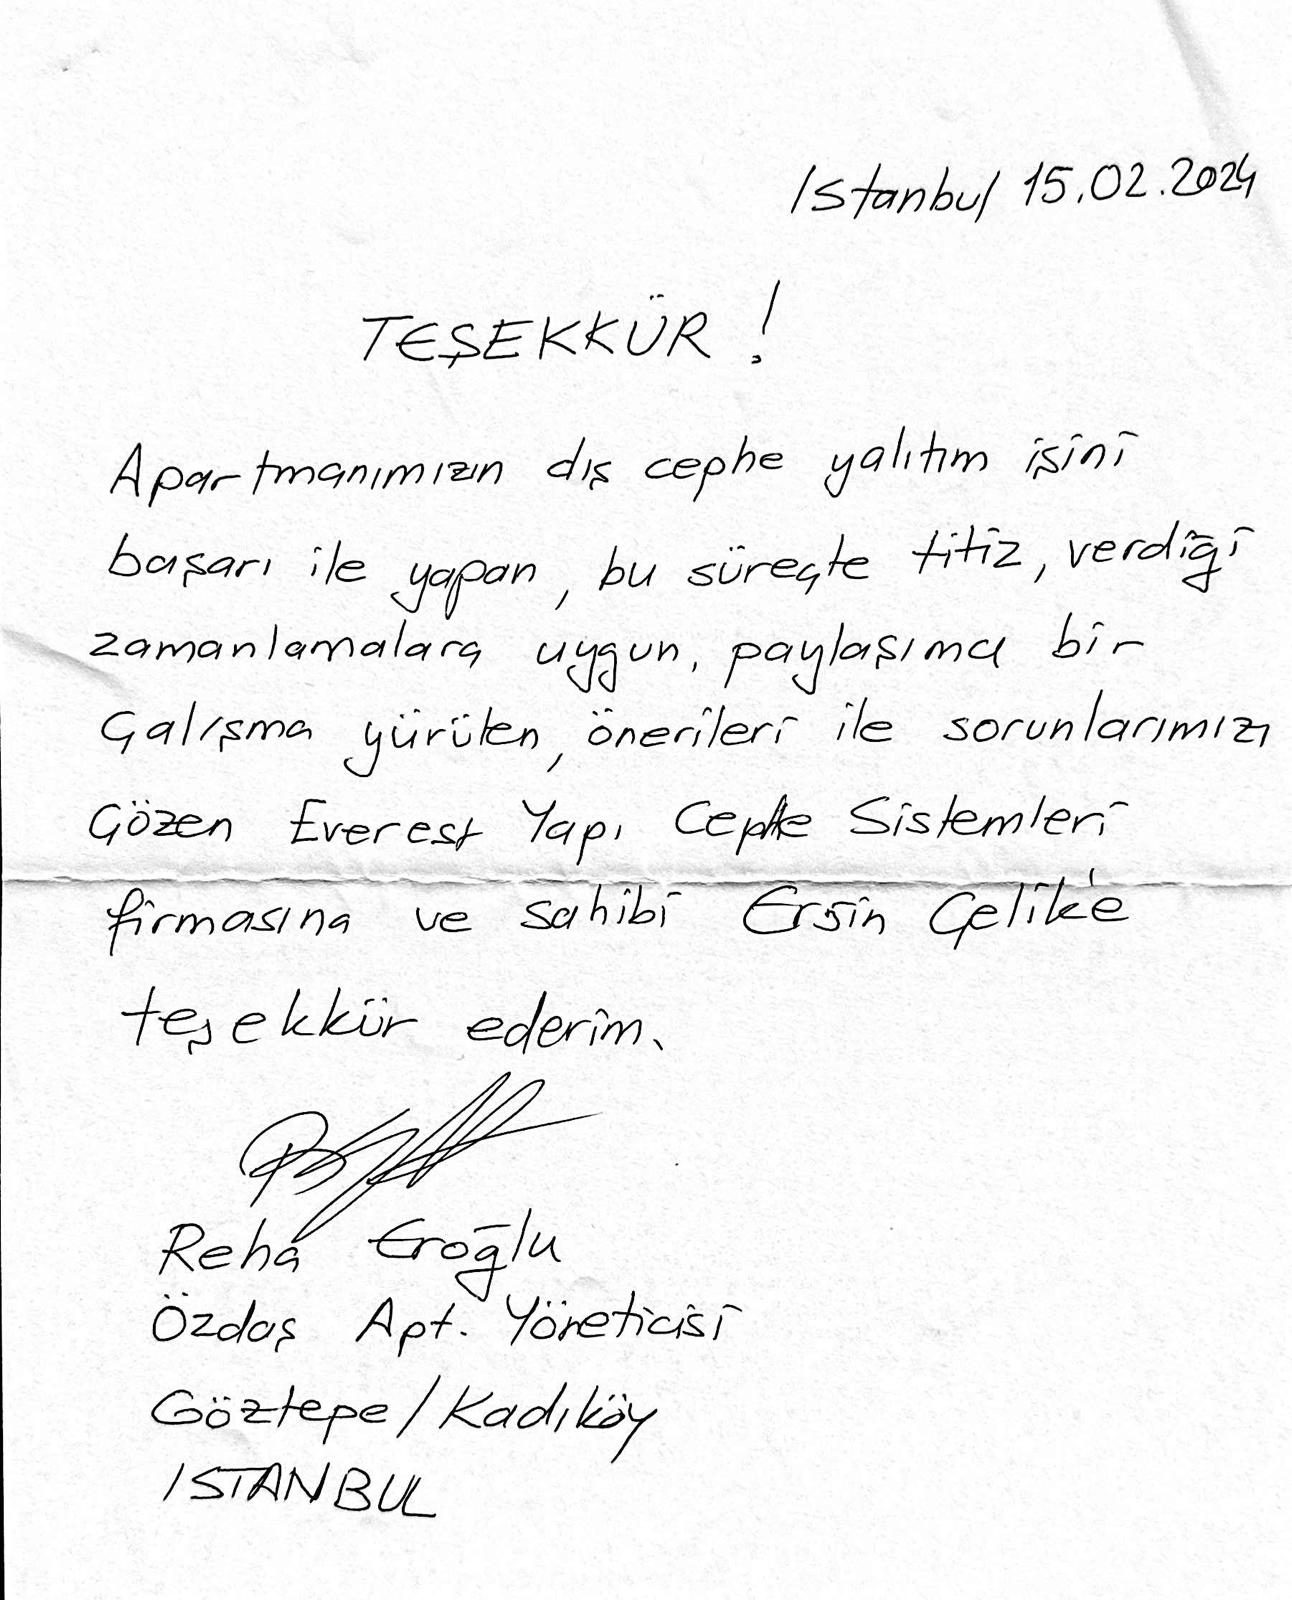 Istanbul 15.02.2024
TEŞEKKÜR !
Apartmanımızın dış cephe yalıtım işini
başarı ile yapan, bu süreçte titiz, verdiği
zamanlamalara uygun, paylaşımcı bir
çalışma yürüten, önerileri ile sorunlarımızı
çözen Everest Yapı Cephe Sistemleri
firmasına ve sahibi Ersin Çelik'e
teşekkür ederim.
Reha Eroğlu
Özdaş Apt. Yöneticisi
Göztepe/Kadıköy
ISTANBUL